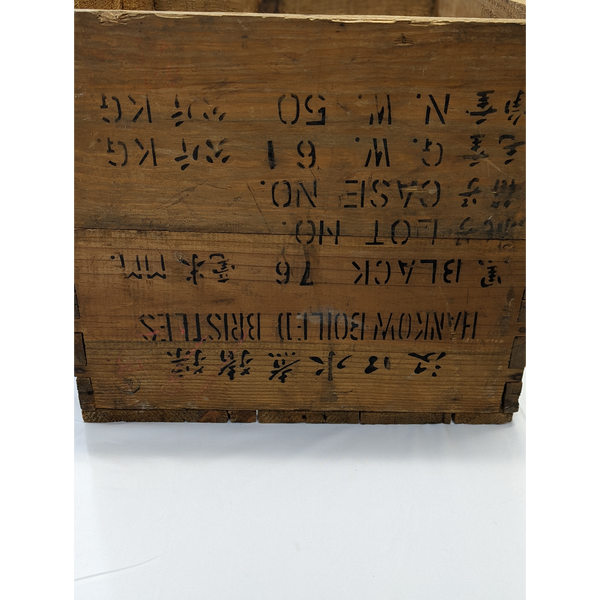 汉口水煮猪鬃
HANKOW BOILED BRISTLES
黑 BLACK 76 毫米 MM.
批号 LOT NO.
箱号 CASE NO.
毛重 G. W. 61 公斤 KG.
净重 N. W. 50 公斤 KG